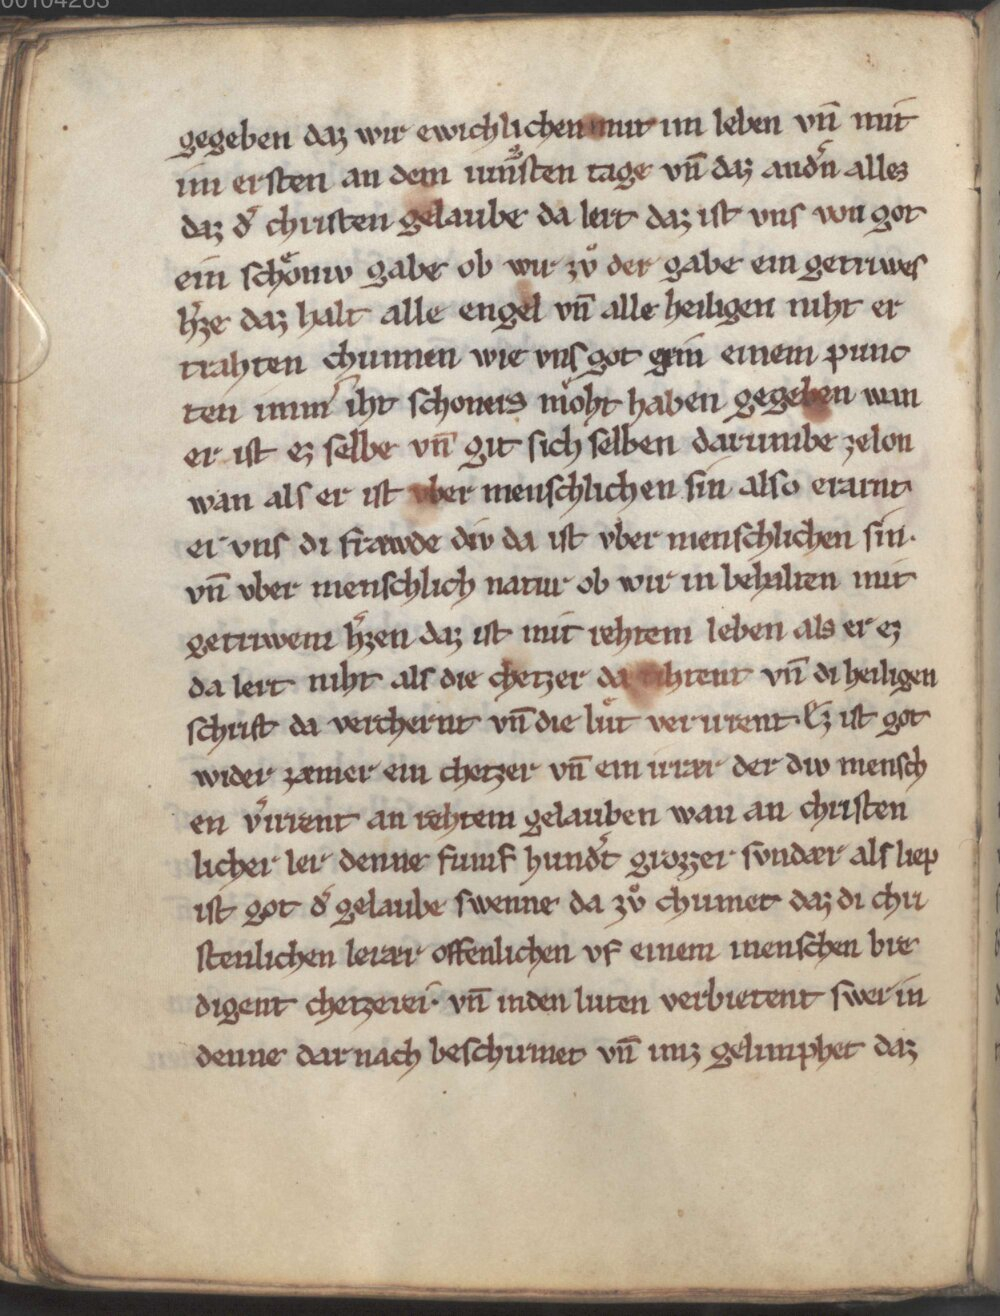 00104263
gegeben daz wir ewichlichen mit im leben vn̄ mit
im ersten an dem iunͤsten tage vn̄ daz andˀn allez
daz dˀ christen gelaube da lert daz ist vns von got
ein schoͤniv gabe ob wir zvͦ der gabe ein getriwes
hˀze daz halt alle engel vn̄ alle heiligen niht er
trahten chunnen wie vns got in einem punc
ten immˀ iht schoners moͤht haben gegeben wan
er ist ez selbe vn̄ git sich selben darumbe zelon
wan als er ist vber menschlichen sin also erarnt
er vns di frawde div da ist vber menschlichen sin.
vn̄ vber menschlich natur ob wir in behalten mit
getriwem hˀzen daz ist mit rehtem leben als er ez
da lert niht als die chetzer da rihtent vn̄ di heiligen
schrift da verchernt vn̄ die luͤt verirrent. Ez ist got
wider zæmer ein chetzer vn̄ ein irrær der div mensch
en vˀirrent an rehtem gelauben wan an christen
licher ler denne fumf hundˀt grozzer svndær als liep
ist got dˀ gelaube swenne da zvͦ chumet daz di chri
stenlichen lerær offenlichen vf einem menschen bre
digent chetzerei. vn̄ inden luten verbietent swer in
denne dar nach beschirmet vn̄ imz gelimphet daz